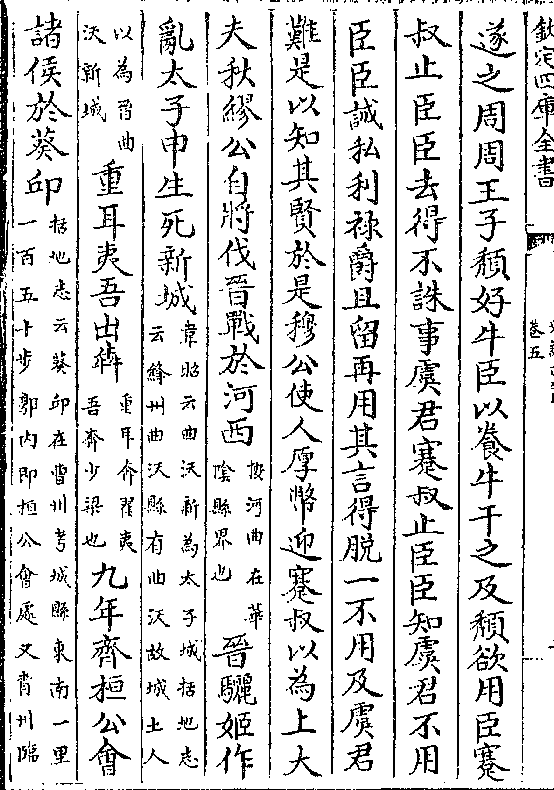 欽定四庫全書
卷五
遂之周周王子頹好牛臣以養牛干之及頹欲用臣蹇
叔止臣臣去得不誅事虞君蹇叔止臣臣知虞君不用
臣臣誠私利祿爵且留再用其言得脫一不用及虞君
難是以知其賢於是穆公使人厚幣迎蹇叔以為上大
夫秋繆公自將伐晉戰於河西按河曲在華陰縣界也晉驪姬作
亂太子申生死新城韋昭云曲沃新為太子城括地志云絳州曲沃縣有曲沃故城土人
以為晉曲沃新城重耳夷吾出犇重耳奔翟夷吾奔少梁也九年齊桓公會
諸侯於葵邱括地志云葵邱在曹州考城縣東南一里一百五十步郭內即桓公會處又青州臨